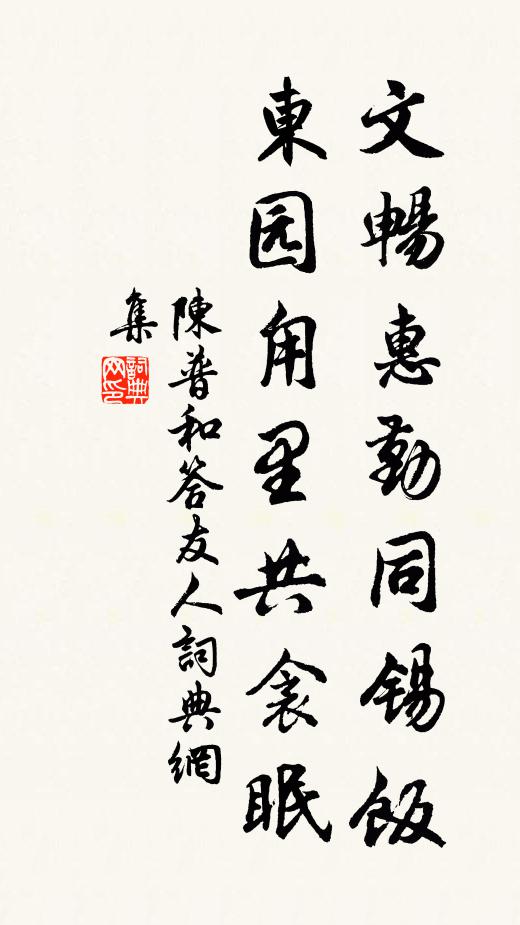 文暢惠勤同錫飯
東园甪里共衾眠
陳普和答友人詞典網
集
詞典
网印